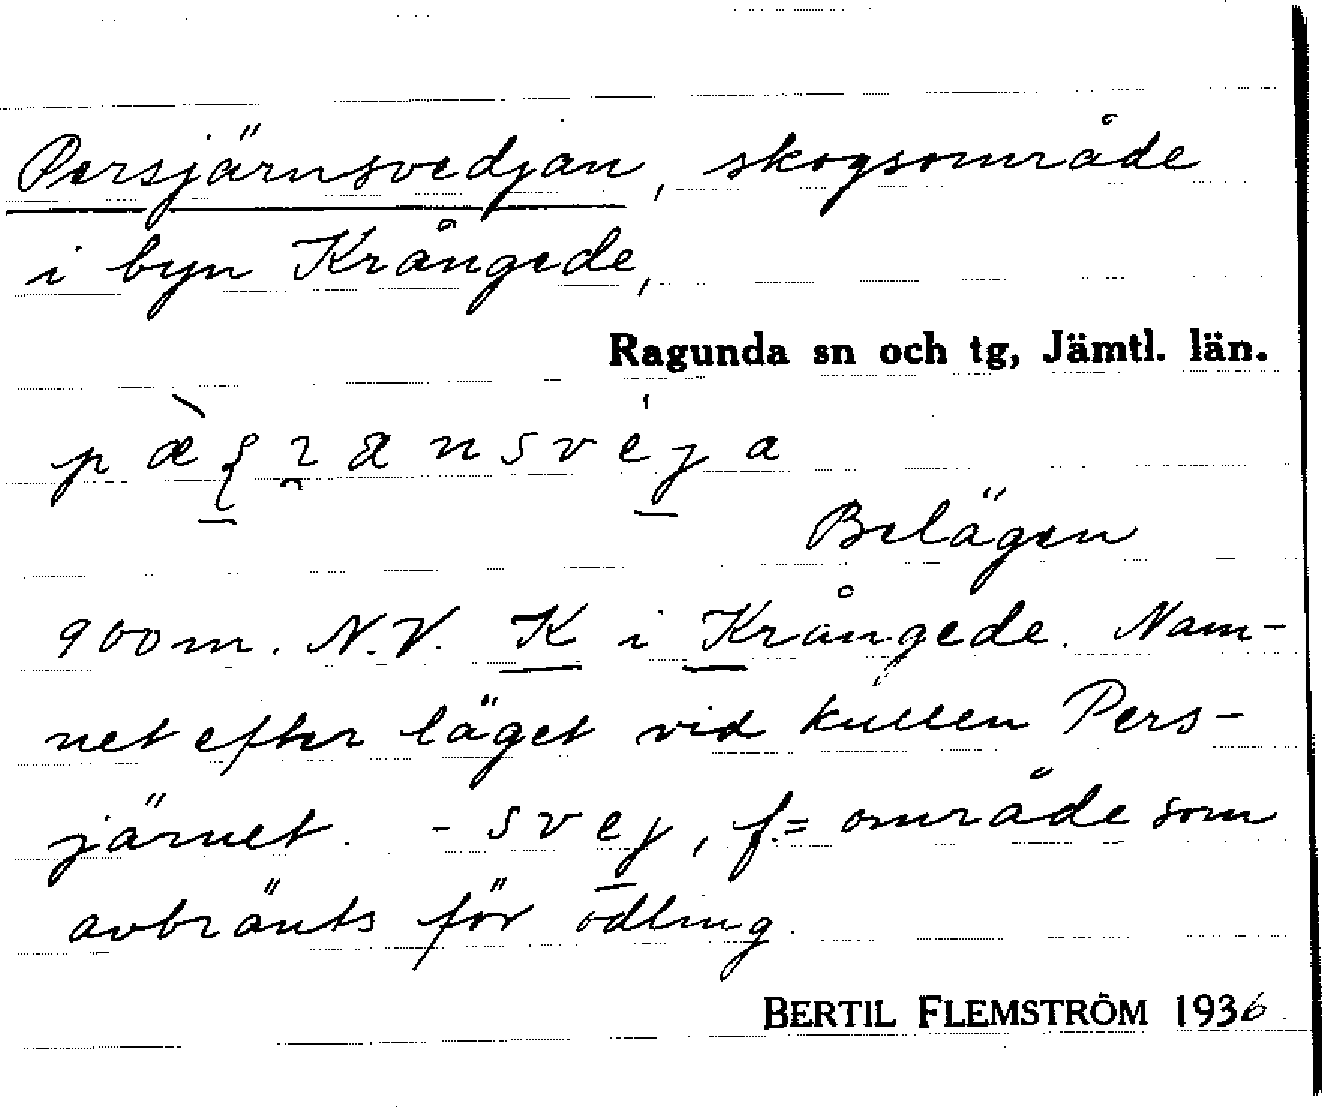 Persjärnsvedjan, skogsområde
i byn Krångede,
Ragunda sn och tg, Jämtl. län.
Belägen
900 m. N.V. K i Krångede. Nam-
net efter läget vid kullen Pers-
järnet. - svej, f. = område som
avbränts för odling.
BERTIL FLEMSTRÖM 1936